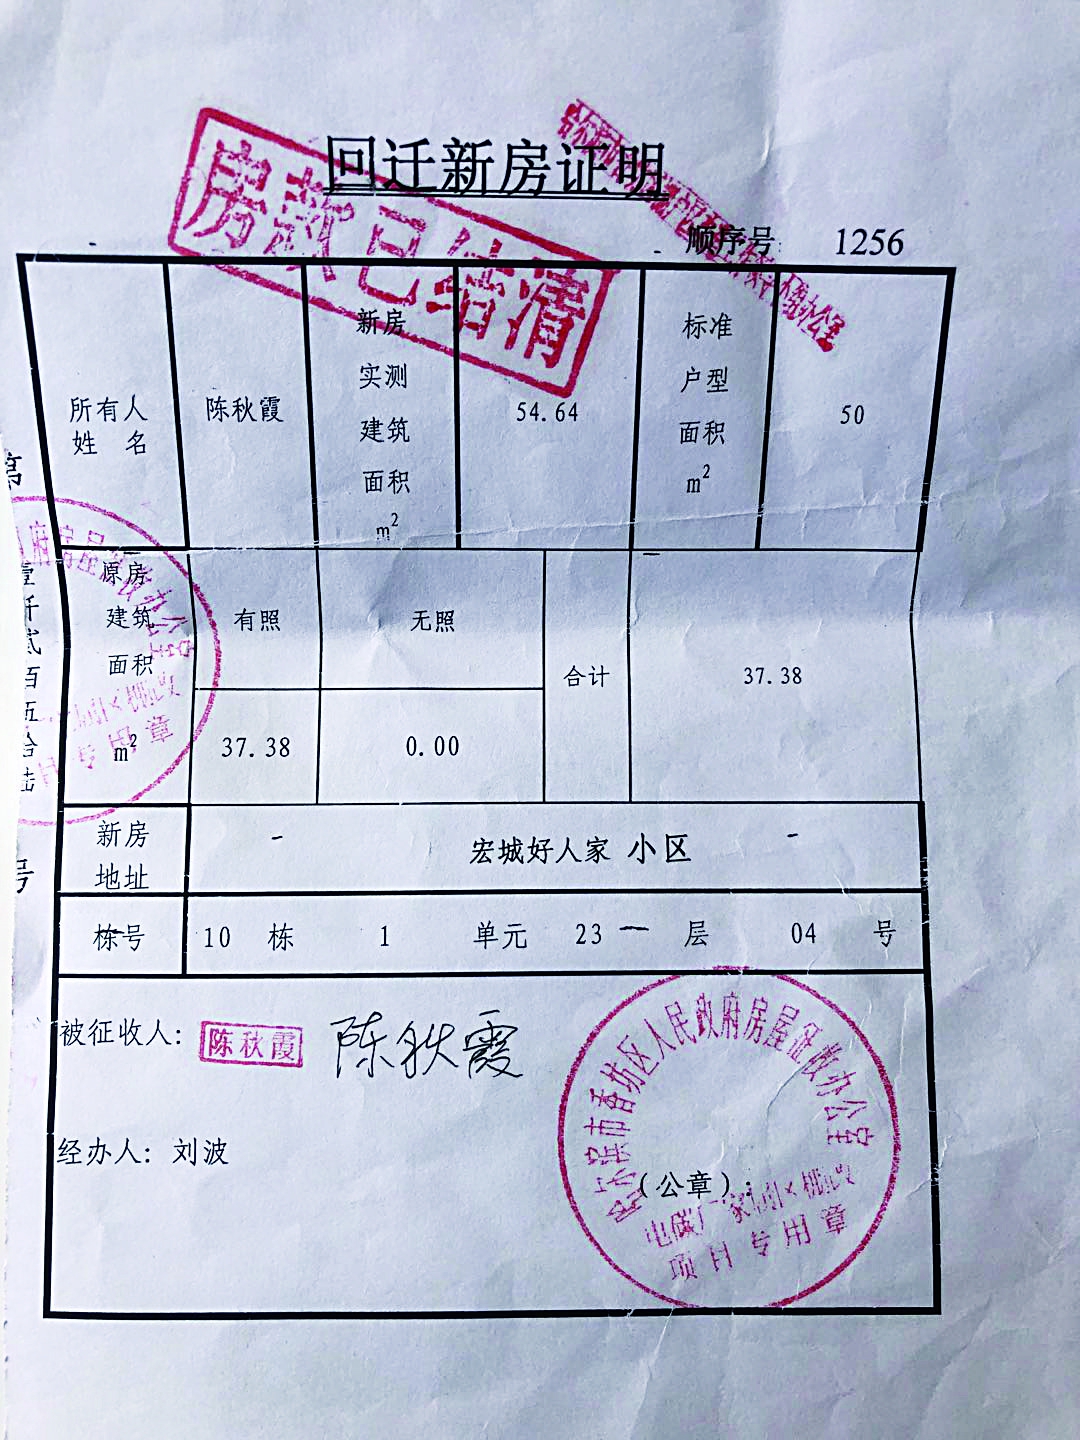 回迁新房证明
房款已结清
顺序号 1256
所有人
姓 名
陈秋霞
新房
实测
建筑
面积
m²
54.64
标准
户型
面积
m²
50
原房
建筑
面积
m²
有照
无照
合计
37.38
37.38
0.00
新房
地址
宏城好人家 小区
栋号
10 栋 1 单元 23 层 04 号
被征收人:
陈秋霞
陈秋霞
经办人: 刘波
(公章):
哈尔滨市香坊区人民政府房屋征收办公室
电碳厂家属区棚改
项目专用章
第
壹仟贰佰伍拾陆
号
府房屋征收办公室
专用章